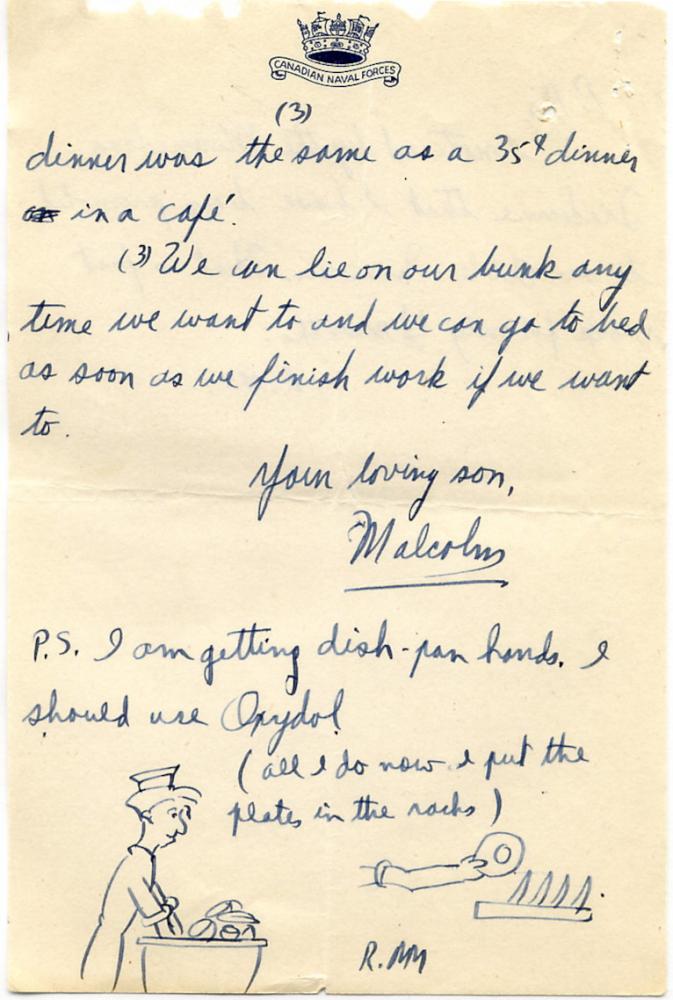 CANADIAN NAVAL FORCES
(3)
dinner was the same as a 35¢ dinner
in a café.
(3) We can lie on our bunk any
time we want to and we can go to bed
as soon as we finish work if we want
to.
Your loving son,
Malcolm
P.S. I am getting dish-pan hands. I
should use Oxydol
(all I do now I put the
plates in the racks)
R.MM